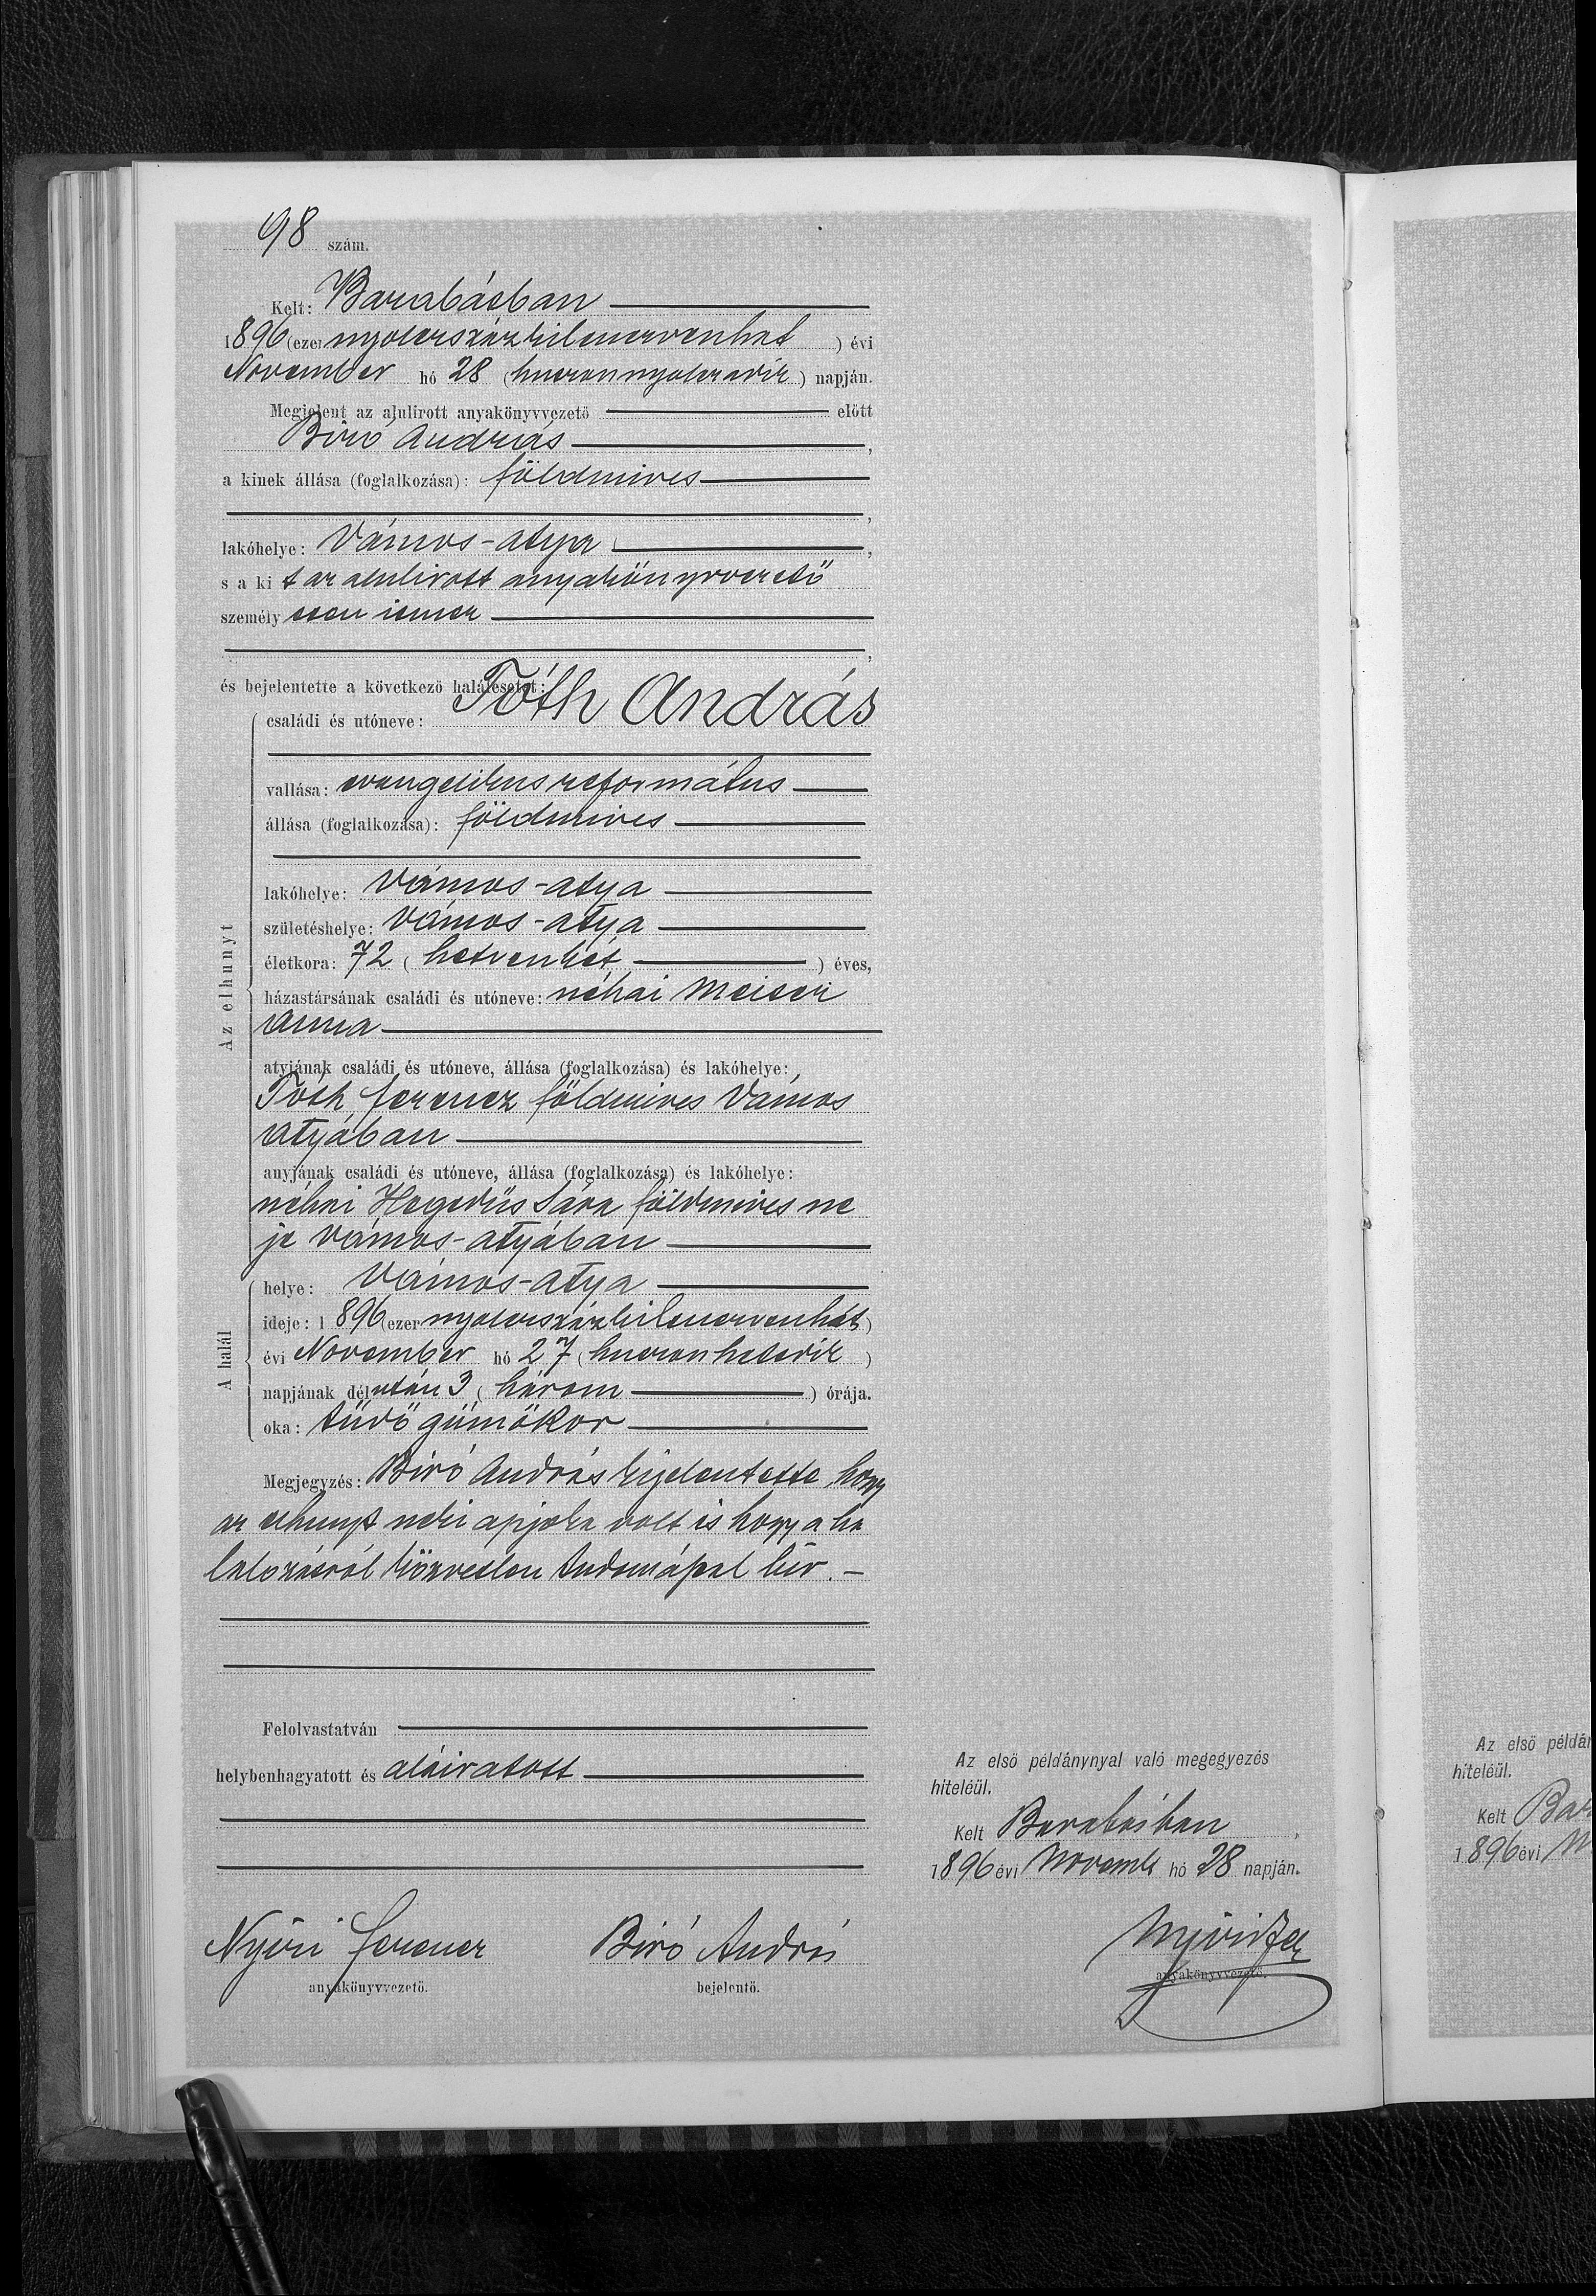 98 szám.
Kelt: Barabásban
1896 (ezer nyolczszázkilenczvenhat) évi
November hó 28 (huszonnyolczadik) napján.
Megjelent az alulirott anyakönyvvezető előtt
Biró András,
a kinek állása (foglalkozása): földmives
,
lakóhelye: Vámos-atya,
s a kit az alulirott anyakönyvvezető
személyesen ismer
,
és bejelentette a következő halálesetet:
Az elhunyt
családi és utóneve: Tóth András
vallása: evangelikus református
állása (foglalkozása): földmives
lakóhelye: Vámos-atya
születéshelye: Vámos-atya
életkora: 72 (hetvenkét) éves,
házastársának családi és utóneve: néhai
Anna
atyjának családi és utóneve, állása (foglalkozása) és lakóhelye:
Tóth Ferencz földmives Vámos
atyában
anyjának családi és utóneve, állása (foglalkozása) és lakóhelye:
néhai Hegedüs Sára földmives ne
je Vámos-atyában
A halál
helye: Vámos-atya
ideje: 1896 (ezer nyolczszázkilenczvenhat)
évi November hó 27 (huszonhetedik)
napjának délután 3 (három) órája.
oka: tüdő gümőkor
Megjegyzés: Biró András kijelentette hogy
az elhunyt neki apja volt és hogy a ha
lálozásról közvetlen tudomással bir. –
Felolvastatván
helybenhagyatott és aláiratott
Nyiri Ferencz
anyakönyvvezető.
Biró András
bejelentő.
Az első példánynyal való megegyezés
hiteléül.
Kelt Barabásban,
1896 évi Novemb hó 28 napján.
Nyiri
anyakönyvvezető.
Az első példán
hiteléül.
Kelt Bar
1896 évi N